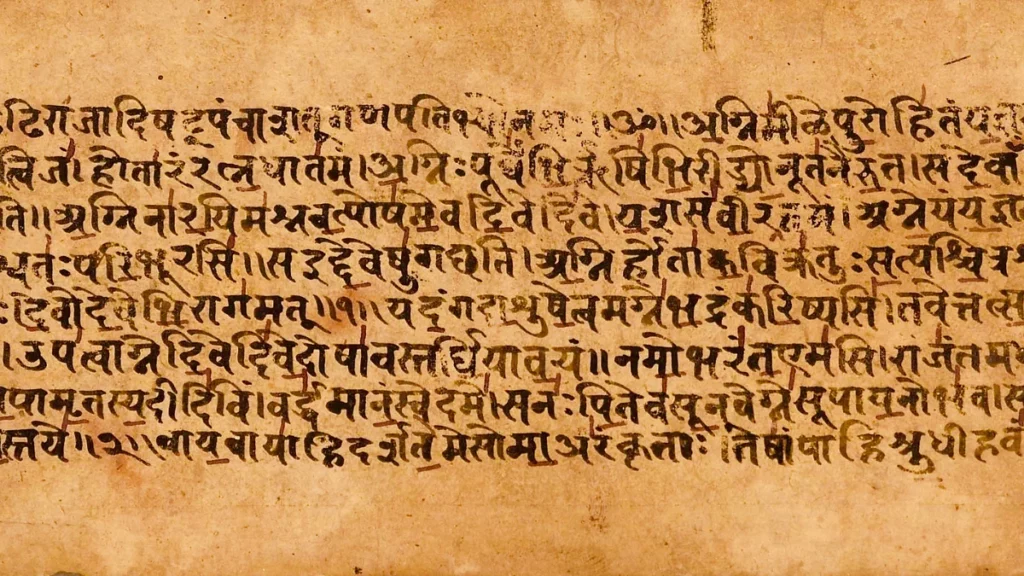 गणपतिभ्योनमः॥ॐ॥अग्निमीळेपुरोहितंय
त्विजं।होतारंरत्नधातमं।अग्निःपूर्वेभिर्ऋषिभिरीड्योनूतनैरुत।सदेवाँ
ति॥अग्निनारयिमश्नवत्पोषमेवदिवेदिवे।यशसंवीरवत्तमं।अग्नेयंयज्ञ
श्वतःपरिभूरसि॥सइद्देवेषुगछति।अग्निर्होताकविक्रतुःसत्यश्चित्रश्र
देवोदेवेभिरागमत्॥१॥यदंगदाशुषेत्वमग्नेभद्रंकरिष्यसि।तवेत्तत्स
।उपत्वाग्नेदिवेदिवेदोषावस्तर्धियावयं॥नमोभरंतएमसि।राजंतम
पामृतस्यदीदिविं।वर्द्धमानंस्वेदमे।सनःपितेवसूनवेग्नेसूपायनोभव।स
स्तये॥२॥वायवायाहिदर्शतेमेसोमाअरंकृताः।तेषांपाहिश्रुधीहवं